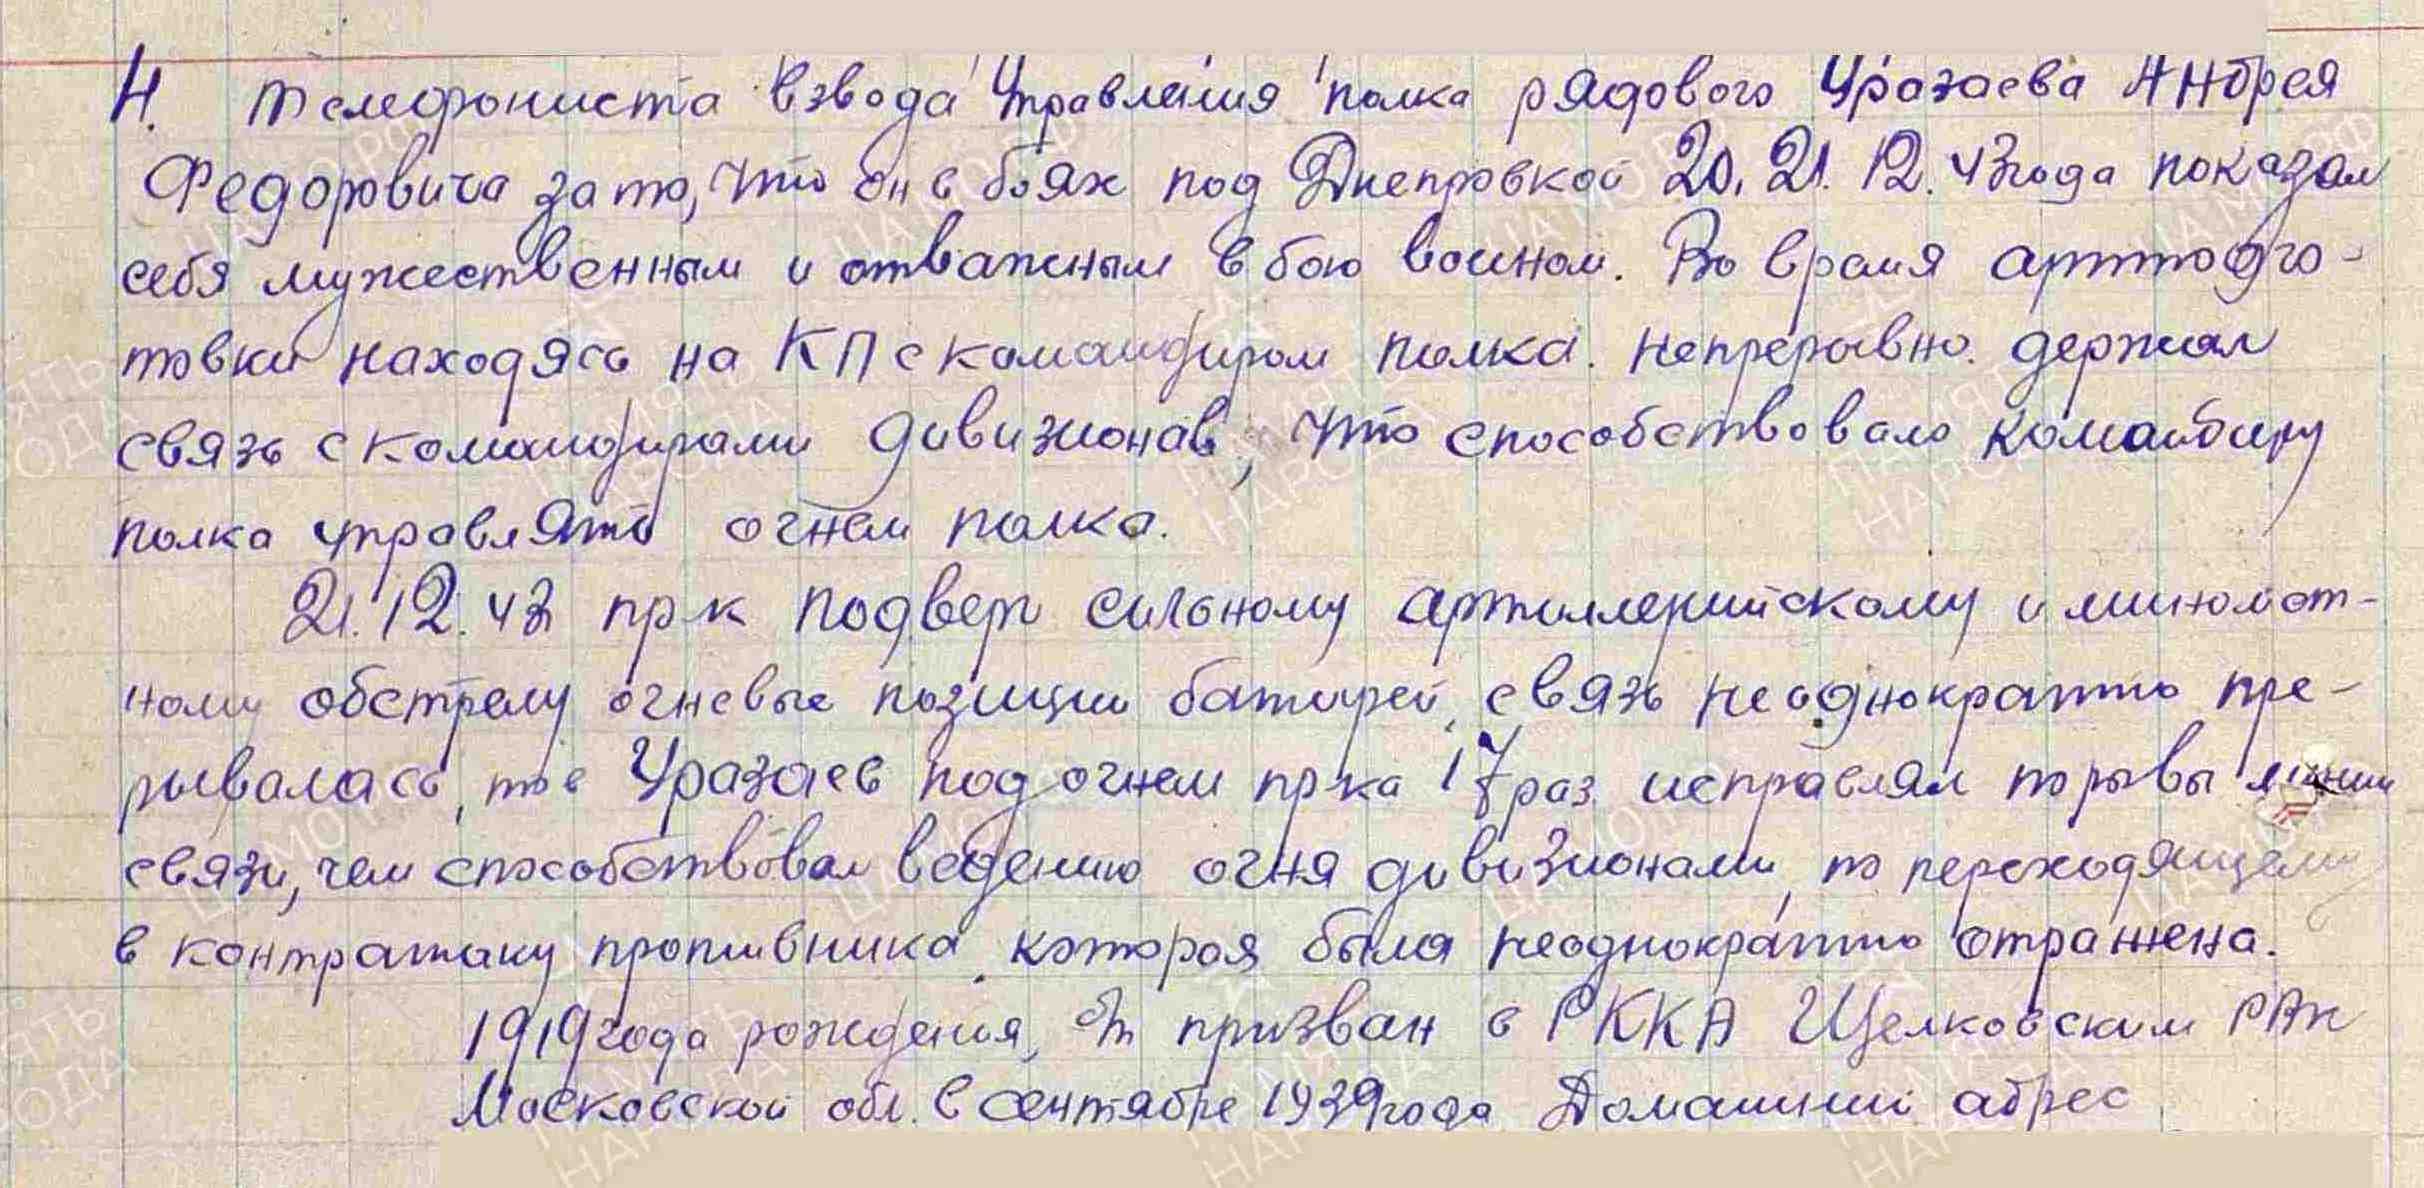 4. Телефониста взвода Управления полка рядового Уразаева Андрея
Федоровича за то, что он в боях под Днепровкой 20. 21. 12. 43 года показал
себя мужественным и отважным в бою воином. Во время артподго-
товки находясь на КП с командиром полка. непрерывно держал
связь с командирами дивизионов, что способствовало командиру
полка управлять огнем полка.
21.12.43 пр-к подверг сильному артиллерийскому и миномет-
ному обстрелу огневые позиции батарей, связь неоднократно пре-
рывалась, тов Уразаев под огнем пр-ка 17 раз исправлял порывы линии
связи, чем способствовал ведению огня дивизионами, по переходящему
в контратаку противника, которая была неоднократно отражена.
1919 года рождения, призван в РККА Щелковским РВК
Московской обл. в сентябре 1939 года Домашний адрес